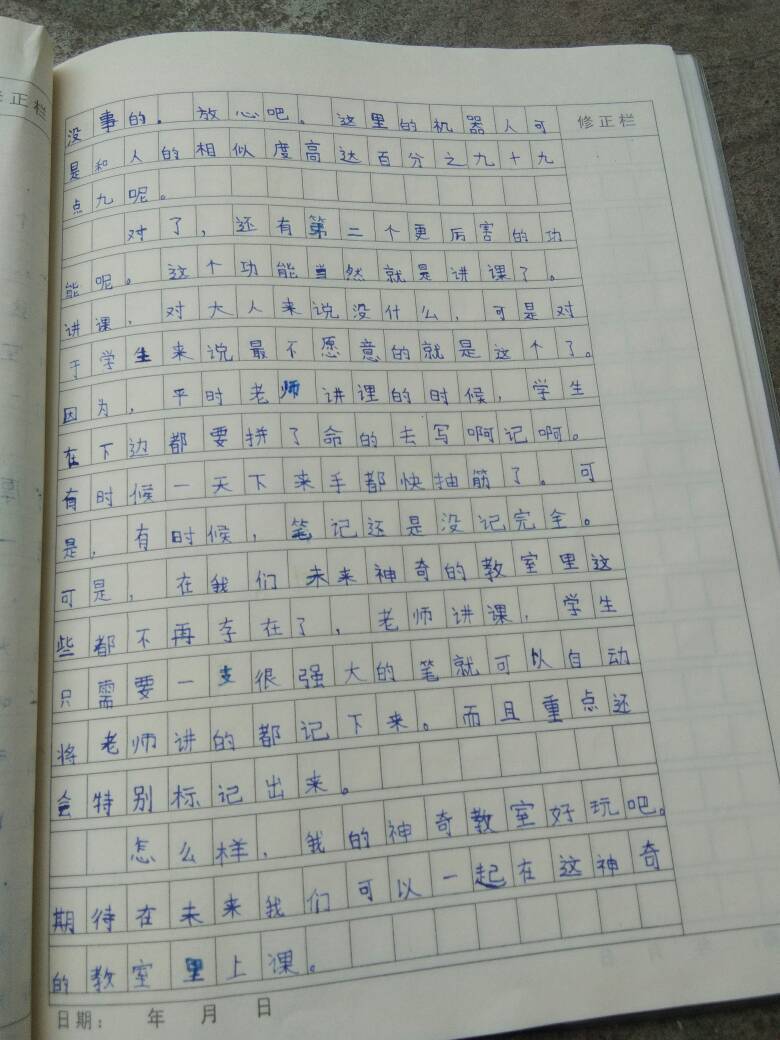 修正栏
修正栏
没事的。放心吧。这里的机器人可
是和人的相似度高达百分之九十九
点九呢。
对了，还有第二个更厉害的功
能呢。这个功能当然就是讲课了。
讲课，对大人来说没什么，可是对
于学生来说最不愿意的就是这个了。
因为，平时老师讲课的时候，学生
在下边都要拼了命的去写啊记啊。
有时候一天下来手都快抽筋了。可
是，有时候，笔记还是没记完全。
可是，在我们未来神奇的教室里这
些都不再存在了，老师讲课，学生
只需要一支很强大的笔就可以自动
将老师讲的都记下来。而且重点还
会特别标记出来。
怎么样，我的神奇教室好玩吧。
期待在未来我们可以一起在这神奇
的教室里上课。
日期： 年 月 日